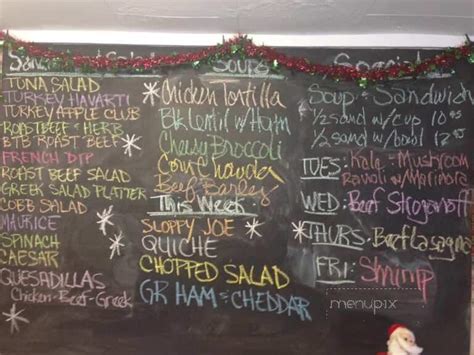 Soups
Specials
TUNA SALAD
TURKEY HAVARTI
TURKEY APPLE CLUB
ROAST BEEF & HERB
BTB ROAST BEEF
FRENCH DIP
ROAST BEEF SALAD
GREEK SALAD PLATTER
COBB SALAD
MAURICE
SPINACH
CAESAR
QUESADILLAS
Chicken-Beef-Greek
Chicken Tortilla
Blk Lentil w/ Ham
Cheesy Broccoli
Corn Chowda
Beef Barley
This Week:
SLOPPY JOE
QUICHE
CHOPPED SALAD
GR HAM & CHEDDAR
Soup & Sandwich
1/2 sand w/ cup 10
1/2 sand w/ bowl 12
TUES: Kale & Mushroom
Ravioli w/ Marinara
WED: Beef Stroganoff
THURS: Beef Lasagna
FRI: Shrimp
menupix